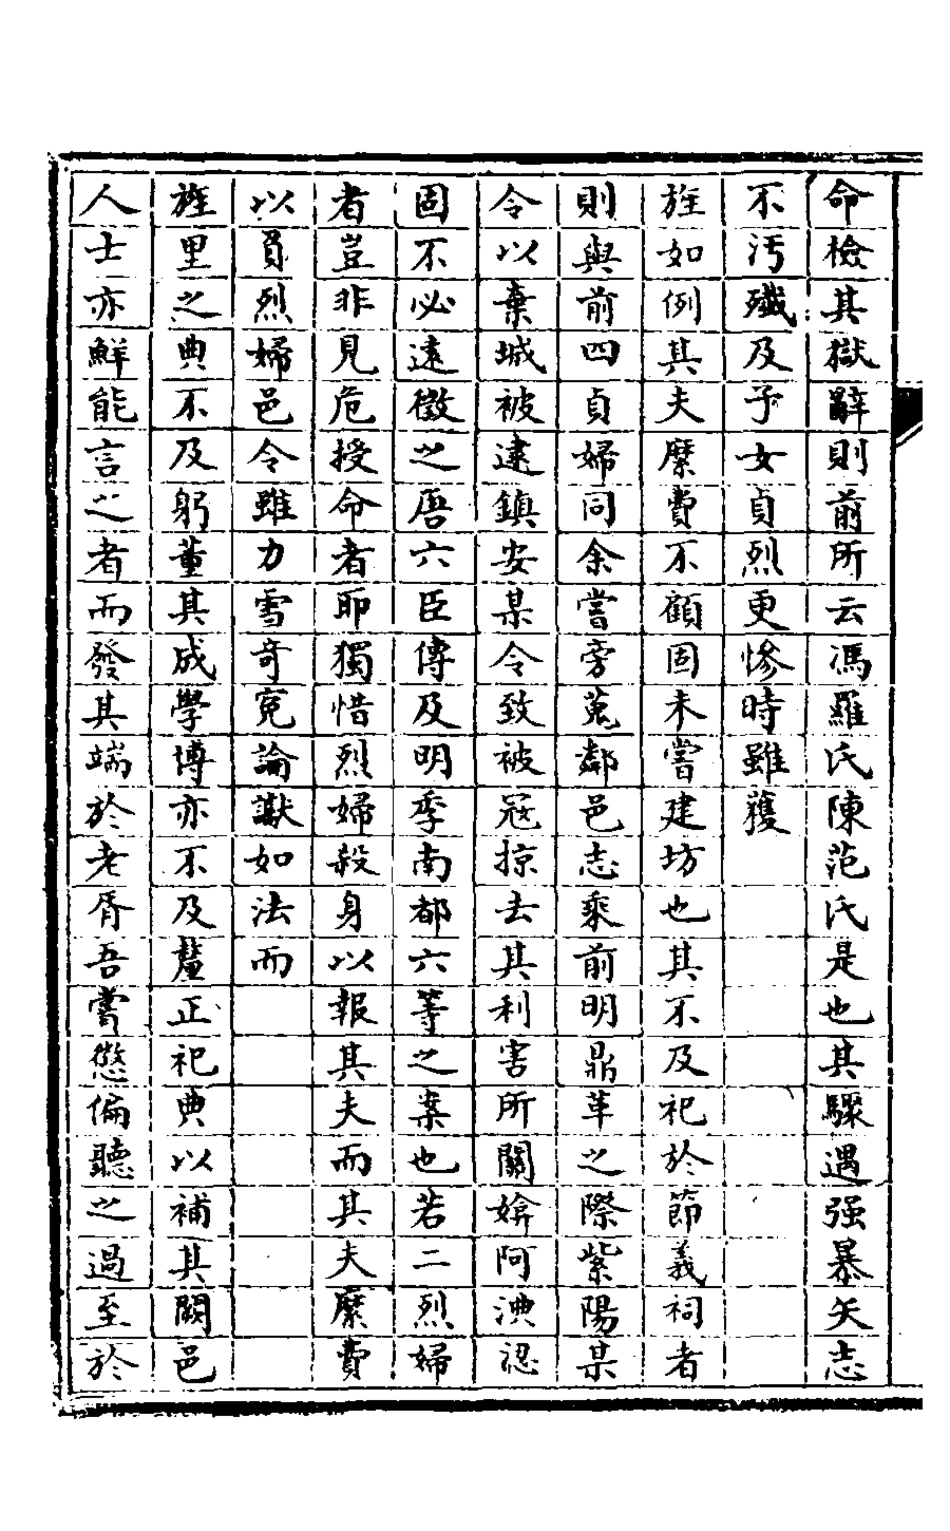 命檢其獄辭則前所云馮羅氏陳范氏是也其驟遇强暴矢志
不汚殲及子女貞烈更慘時雖蒦
旌如例其夫縻費不顧固未嘗建坊也其不及祀於節義祠者
則與前四貞婦同余嘗旁蒐鄰邑志乘前明鼎革之際紫陽某
令以棄城被逮鎮安某令致被冦掠去其利害所關媕阿淟涊
固不必遠徵之唐六臣傳及明季南都六等之案也若二烈婦
者豈非見危授命者耶獨惜烈婦殺身以報其夫而其夫縻費
以負烈婦邑令雖力雪奇寃論讞如法而
旌里之典不及躬董其成學博亦不及釐正祀典以補其闕邑
人士亦鮮能言之者而發其端於老胥吾嘗懲偏聽之過至於